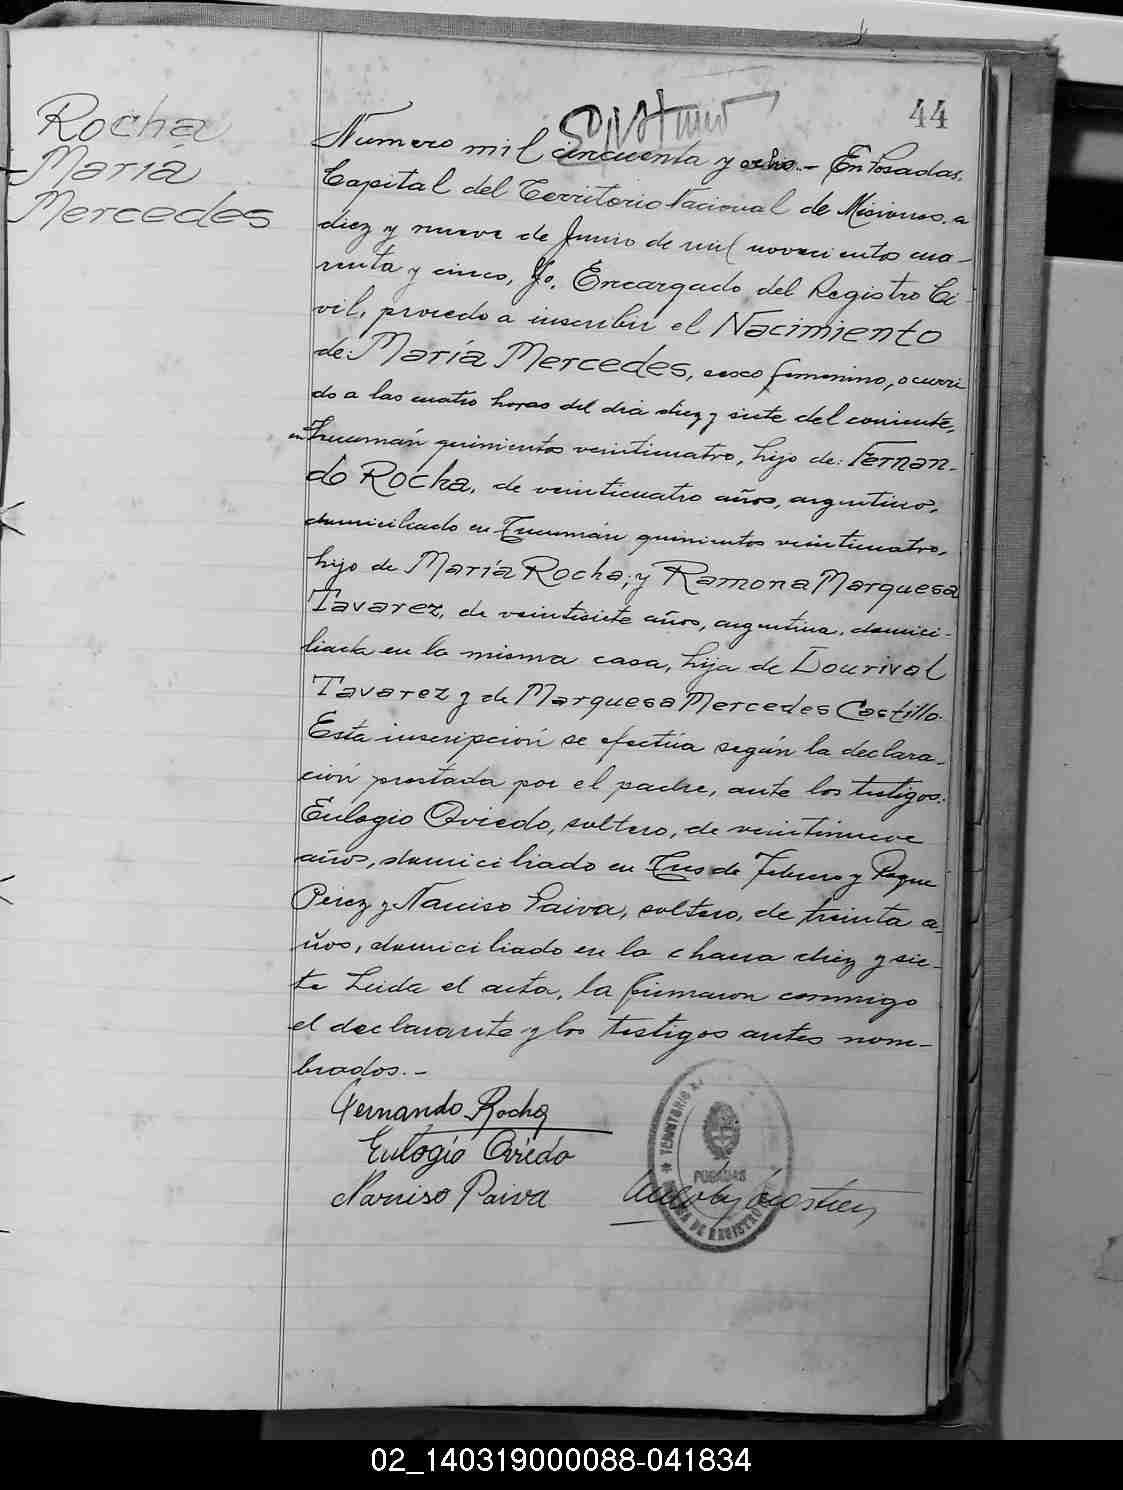 44
Rocha
María
Mercedes
Numero mil cincuenta y ocho.- En Posadas,
Capital del Territorio Nacional de Misiones, a
diez y nueve de Junio de mil novecientos cua-
renta y cinco, Yo, Encargado del Registro Ci-
vil, procedo a inscribir el Nacimiento
de: María Mercedes, sexo femenino, ocurri
do a las cuatro horas del dia diez y siete del corriente,
en Tucumán quinientos veinticuatro, hijo de: Fernan-
do Rocha, de veinticuatro años, argentino,
domiciliado en Tucumán quinientos veinticuatro,
hijo de María Rocha; y Ramona Marquesa
Tavarez, de veintisiete años, argentina, domici-
liada en la misma casa, hija de Lourival
Tavarez y de Marquesa Mercedes Castillo.
Esta inscripción se efectúa según la declara-
ción prestada por el padre, ante los testigos:
Eulogio Oviedo, soltero, de veintinueve
años, domiciliado en Tres de Febrero y Roque
Pérez y Narciso Paiva, soltero, de treinta a-
ños, domiciliado en la chacra diez y sie-
te Leida el acta, la firmaron conmigo
el declarante y los testigos antes nom-
brados.-
Fernando Rocha
Eulogio Oviedo
Narciso Paiva
TERRITORIO
POSADAS
DE REGISTRO
02_140319000088-041834